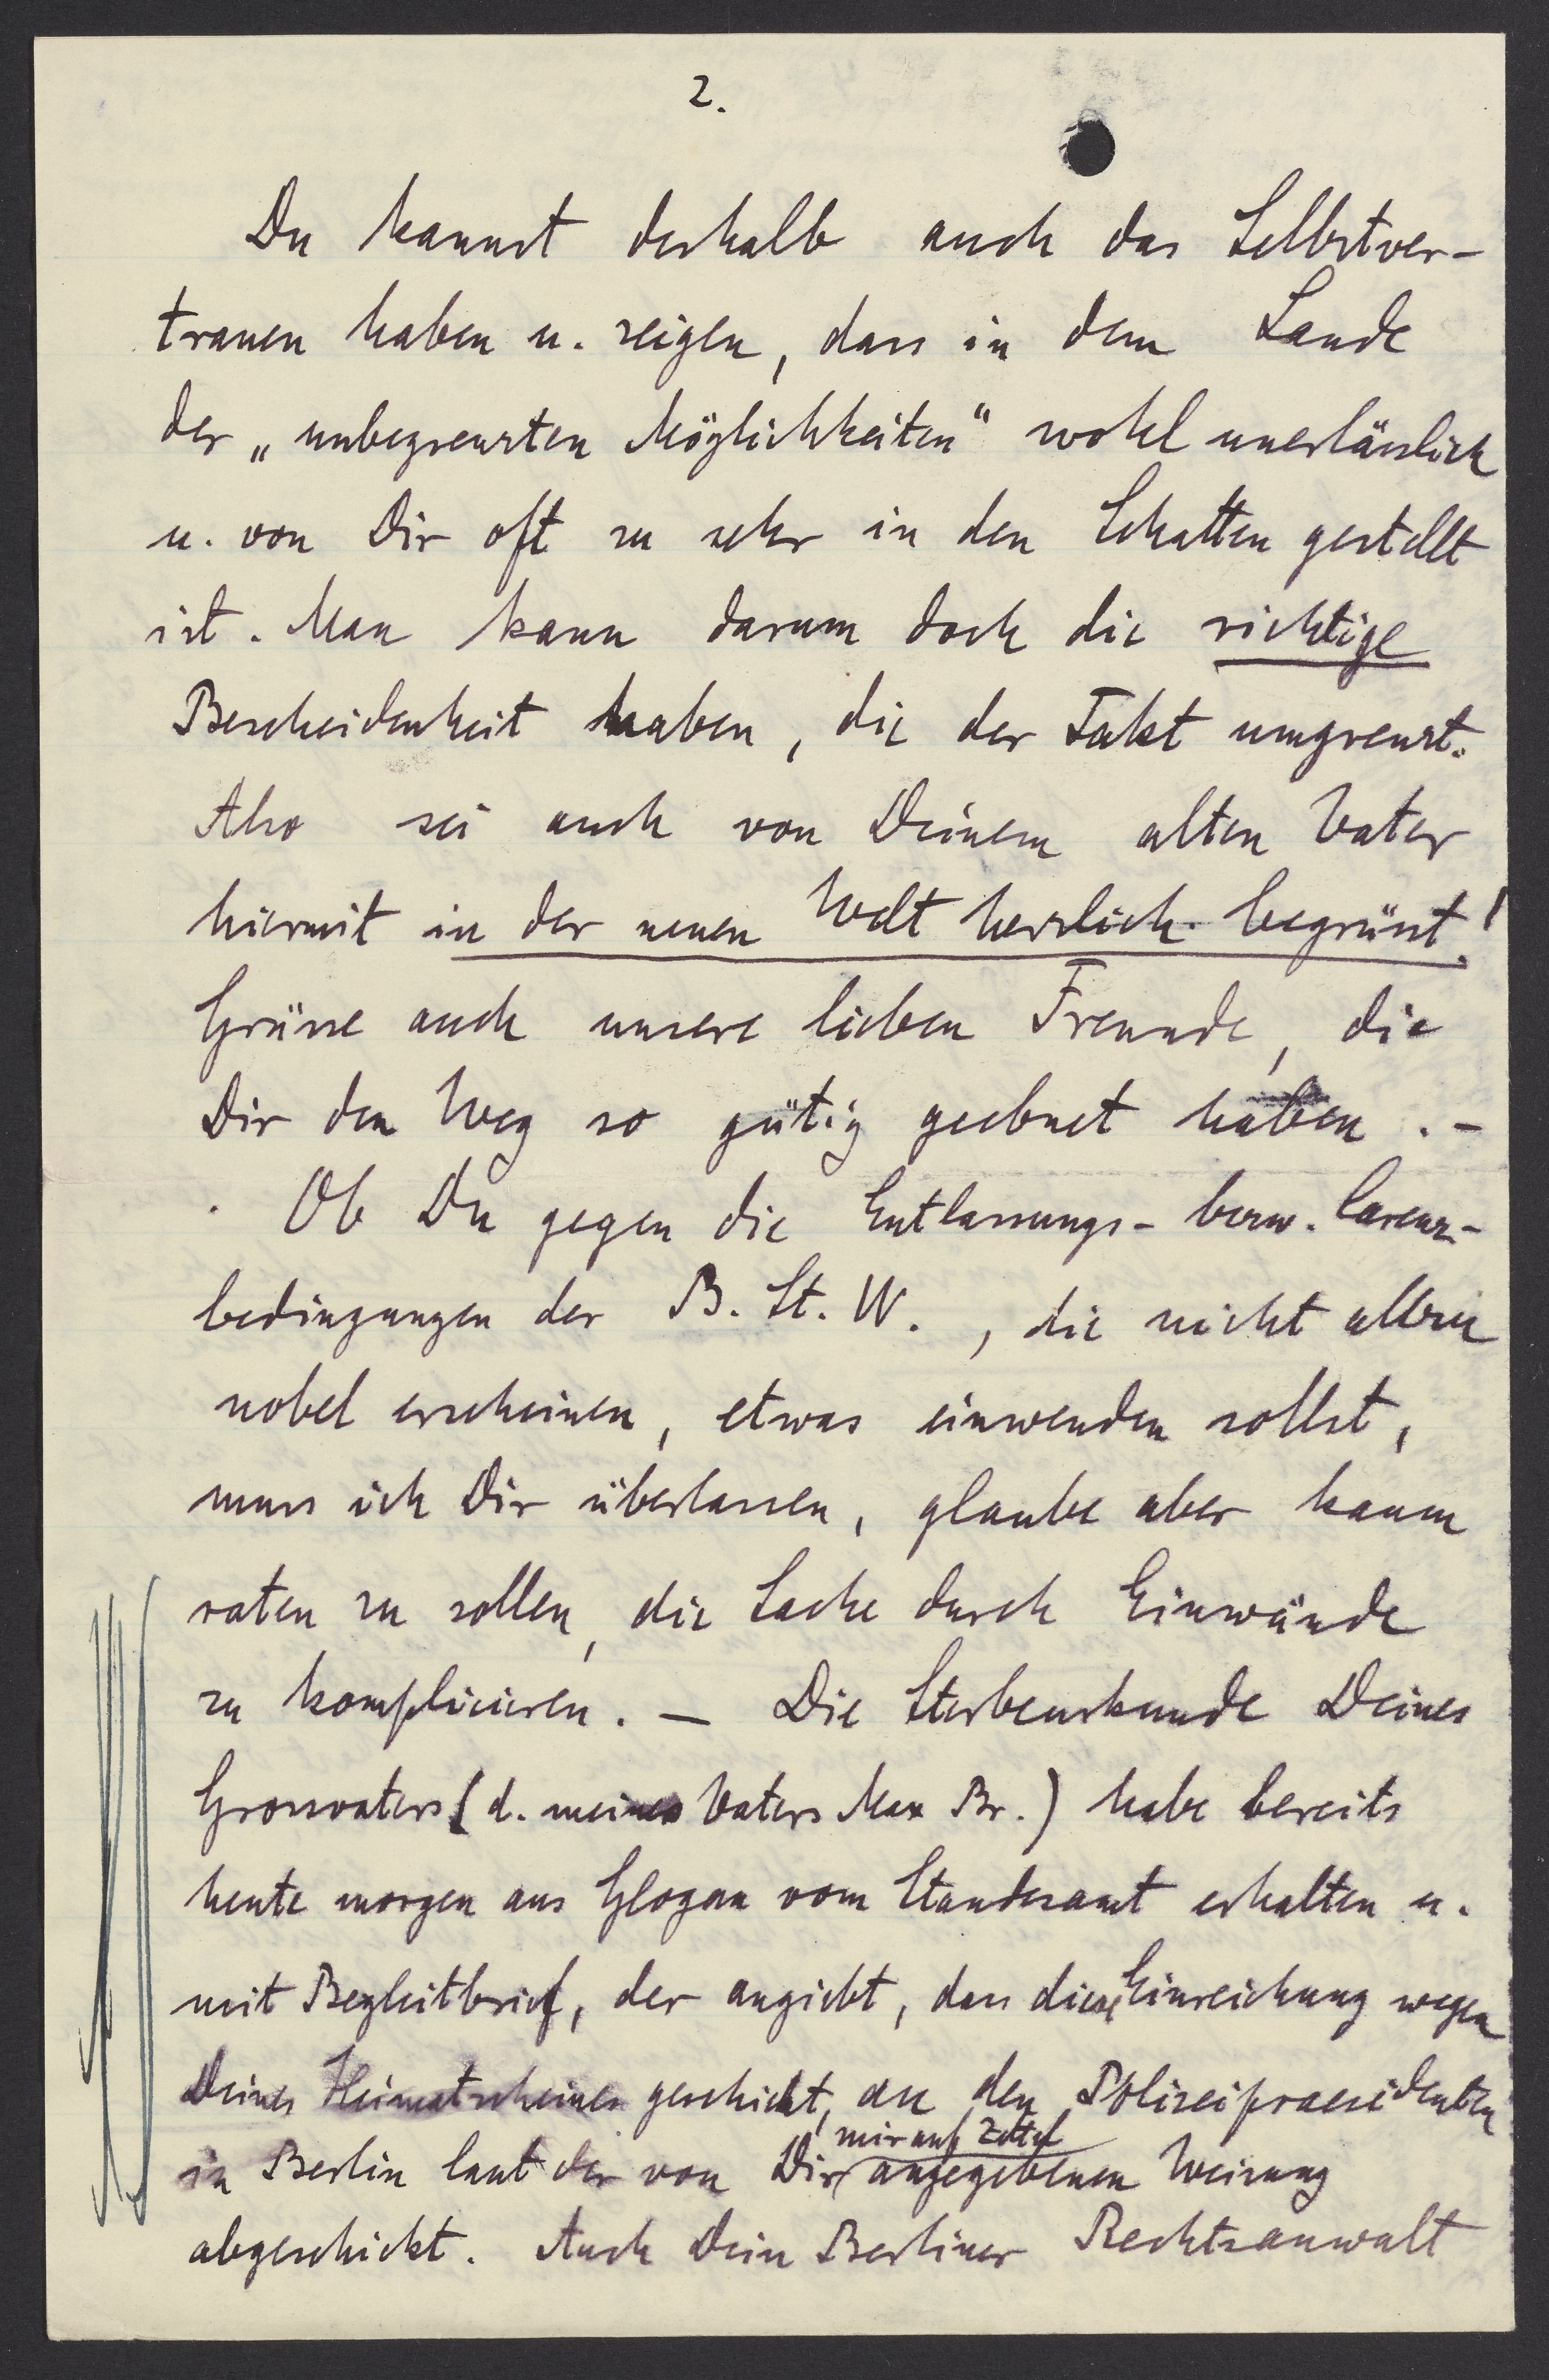 2.
Du kannst deshalb auch das Selbstver-
trauen haben u. zeigen, dass in dem Lande
der „unbegrenzten Möglichkeiten" wohl unerlässlich
u. von Dir oft zu sehr in den Schatten gestellt
ist. Man kann darum doch die richtige
Bescheidenheit haben, die der Takt umgrenzt.
Also sei auch von Deinem alten Vater
hiermit in der neuen Welt herzlich begrüsst!
Grüsse auch unsere lieben Freunde, die
Dir den Weg so gütig geebnet haben. -
Ob Du gegen die Entlassungs- bezw. Carenz-
bedingungen der B. St. W., die nicht allzu
nobel erscheinen, etwas einwenden sollst,
muss ich Dir überlassen, glaube aber kaum
raten zu sollen, die Sache durch Einwände
zu komplicieren. - Die Sterbeurkunde Deines
Grossvaters (d. meines Vaters Max Br.) habe bereits
heute morgen aus Glogau vom Standesamt erhalten u.
mit Begleitbrief, der angiebt, dass diese Einreichung wegen
Deines Heimatscheines geschieht, an den Polizeipraesidenten
mir auf Zettel
in Berlin laut der von Dir angegebenen Weisung
abgeschickt. Auch Dein Berliner Rechtsanwalt